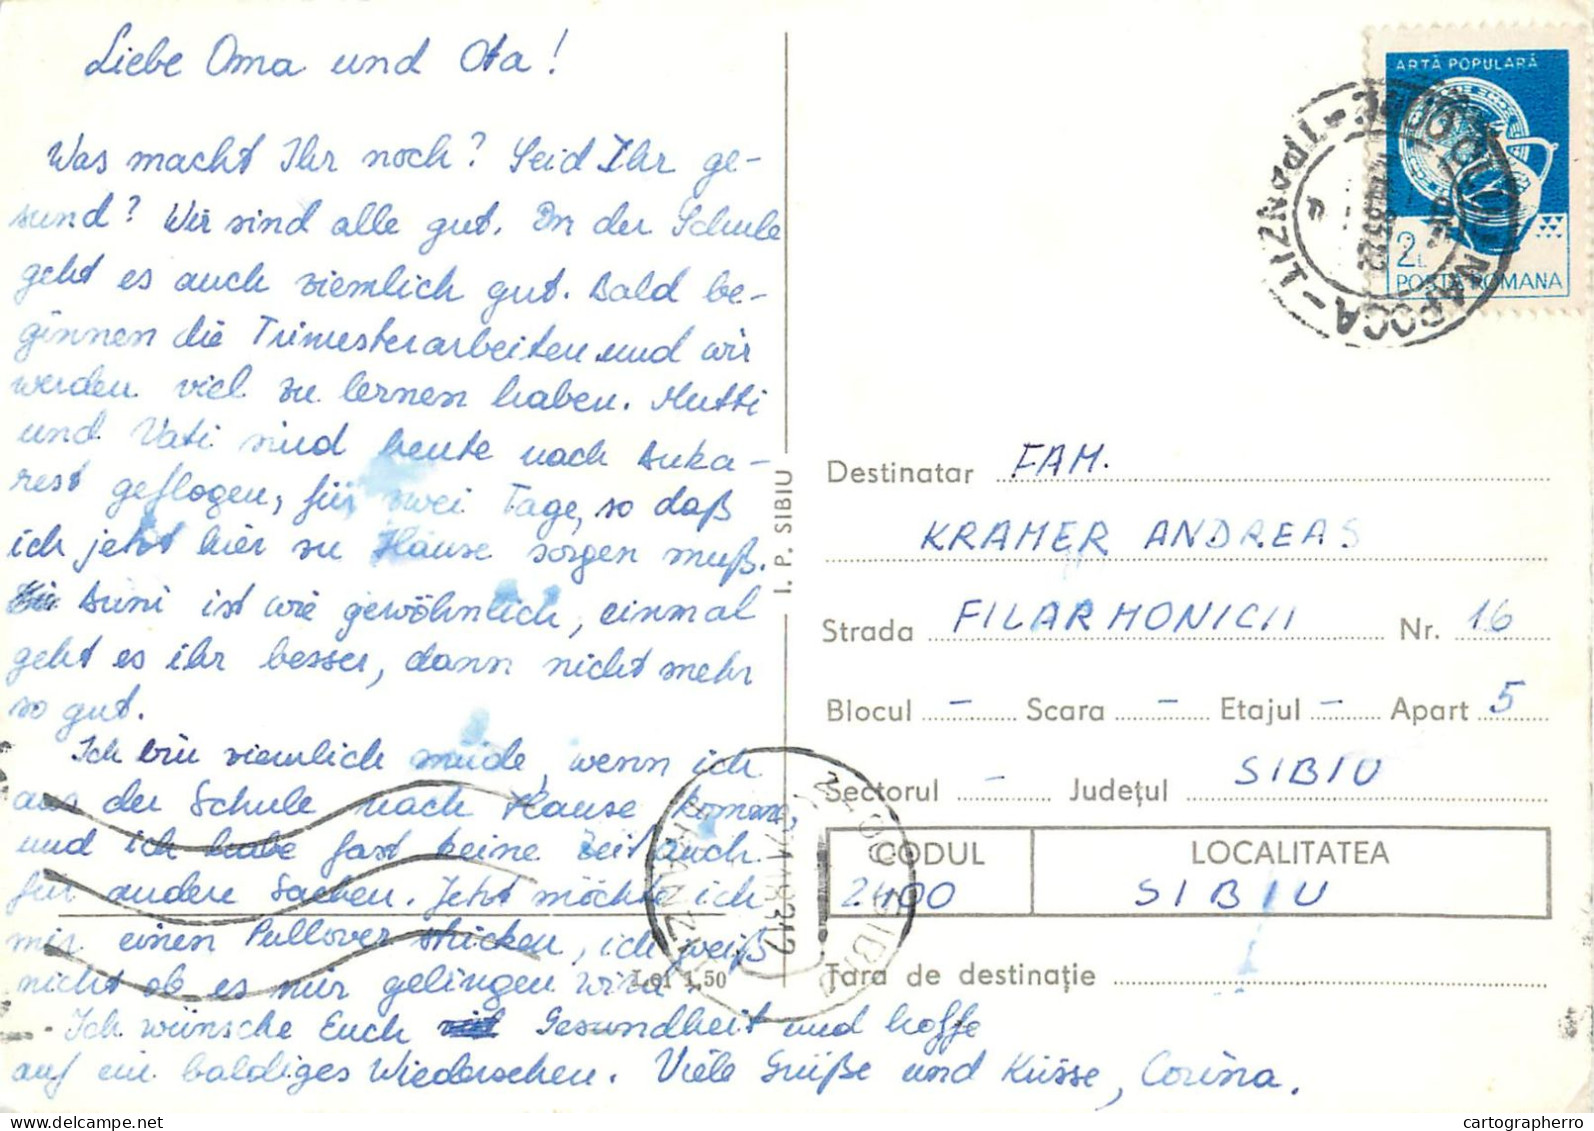 Liebe Oma und Ota!
Was macht Ihr noch? Seid Ihr ge-
sund? Wir sind alle gut. In der Schule
geht es auch ziemlich gut. Bald be-
ginnen die Trimesterarbeiten und wir
werden viel zu lernen haben. Mutti
und Vati sind heute nach Buka-
rest geflogen, für zwei Tage, so daß
ich jetzt hier zu Hause sorgen muß.
Buni ist wie gewöhnlich, einmal
geht es ihr besser, dann nicht mehr
so gut.
Ich bin ziemlich müde, wenn ich
aus der Schule nach Hause komme,
und ich habe fast keine Zeit auch
für andere Sachen. Jetzt möchte ich
mir einen Pullover stricken, ich weiß
nicht ob es mir gelingen wird.
Ich wünsche Euch Gesundheit und hoffe
auf ein baldiges Wiedersehen. Viele Grüße und Küsse, Corina.
Lei 1,50
I. P. SIBIU
ARTĂ POPULARĂ
2L
POSTA ROMANA
CLUJ-NAPOCA - TRANZIT
Destinatar FAM.
KRAMER ANDREAS
Strada FILARMONICII Nr. 16
Blocul – Scara – Etajul – Apart 5
Sectorul – Județul SIBIU
CODUL LOCALITATEA
2400 SIBIU
Țara de destinație
SIBIU
TRANZIT
cartographerro